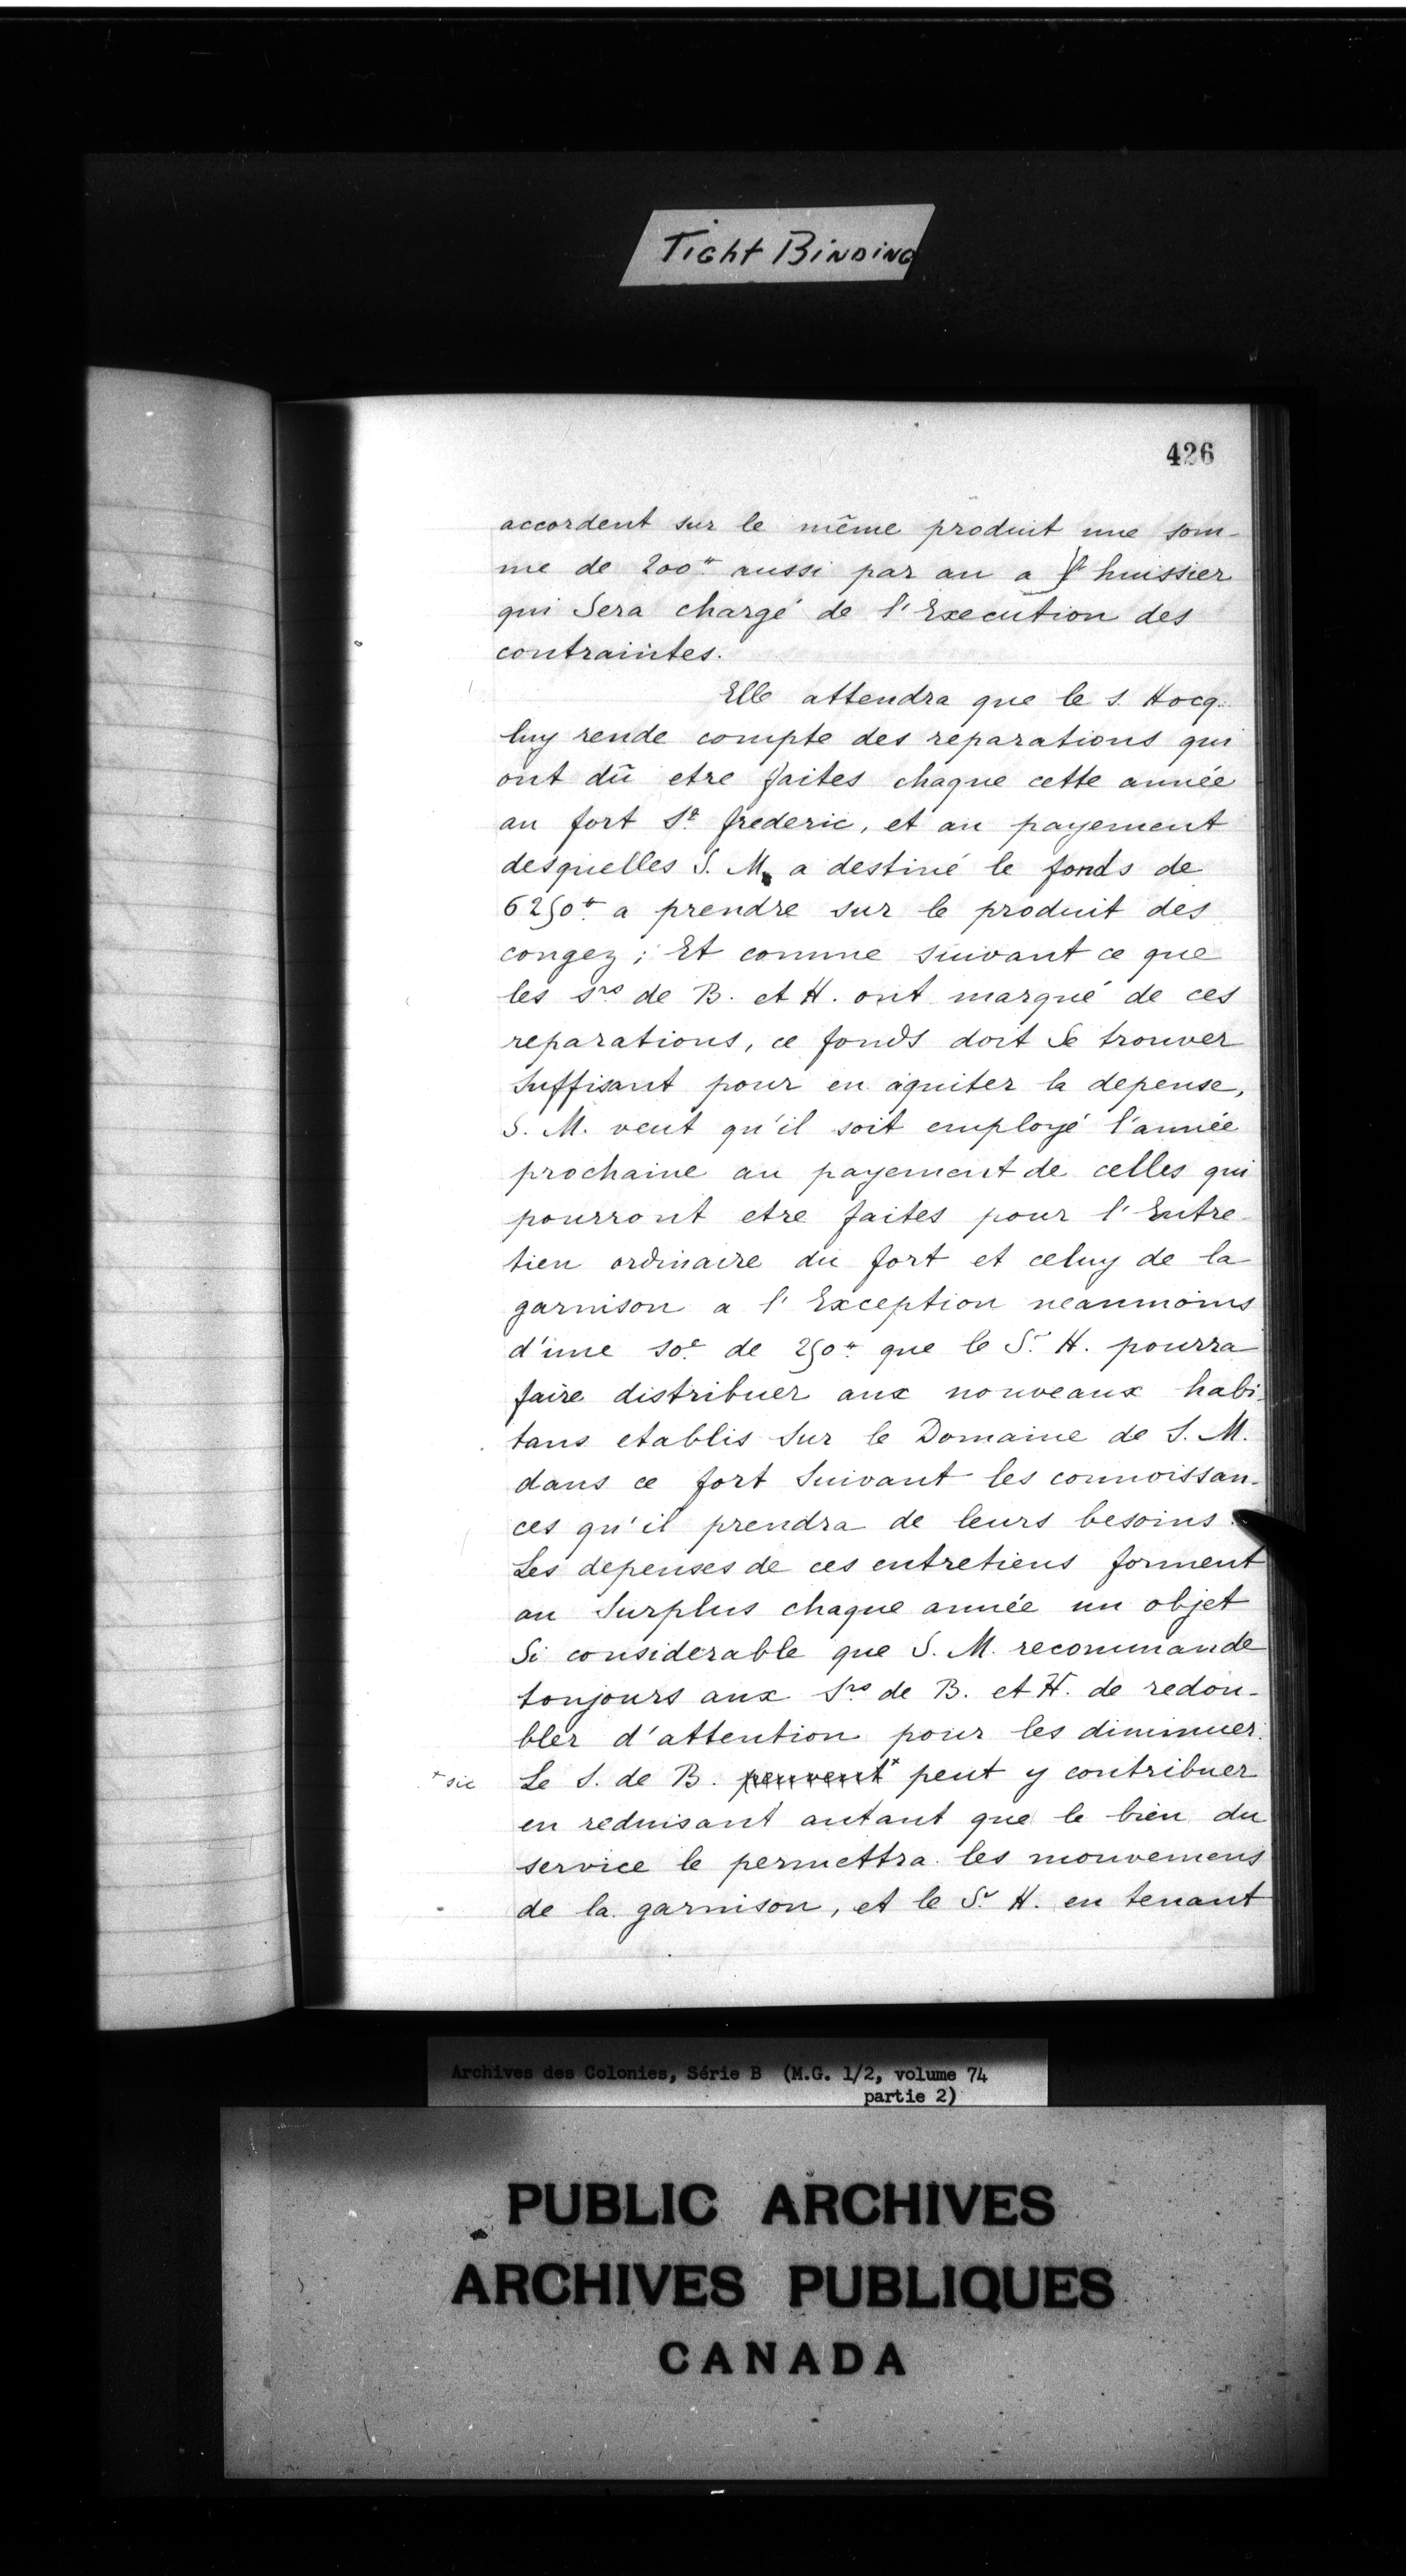 Tight Binding
426
accordent sur le même produit une som-
me de 200ᵗᵗ aussi par an a l'huissier
qui Sera chargé de l'Execution des
contraintes.
Elle attendra que le s. Hocq.
luy rende compte des reparations qui
ont dû etre faites chaque cette année
au fort Sᵗ frederic, et au payement
desquelles S. M. a destiné le fonds de
6250ᵗᵗ a prendre sur le produit des
congez; Et comme suivant ce que
les sʳˢ de B. et H. ont marqué de ces
reparations, ce fonds doit Se trouver
Suffisant pour en aquiter la depense,
S. M. veut qu'il soit employé l'année
prochaine au payement de celles qui
pourront etre faites pour l'Entre-
tien ordinaire du fort et celuy de la
garnison a l'Exception neanmoins
d'une soᵉ de 250ᵗᵗ que le Sʳ H. pourra
faire distribuer aux nouveaux habi-
tans etablis Sur le Domaine de S. M.
dans ce fort Suivant les connoissan-
ces qu'il prendra de leurs besoins.
Les depenses de ces entretiens forment
au Surplus chaque année un objet
Si considerable que S. M. recommande
toujours aux Sʳˢ de B. et H. de redou-
bler d'attention pour les diminuer.
+ sic Le S. de B. peuvent+ peut y contribuer
en reduisant autant que le bien du
service le permettra les mouvemens
de la garnison, et le Sʳ H. en tenant
Archives des Colonies, Série B (M.G. 1/2, volume 74
partie 2)
PUBLIC ARCHIVES
ARCHIVES PUBLIQUES
CANADA